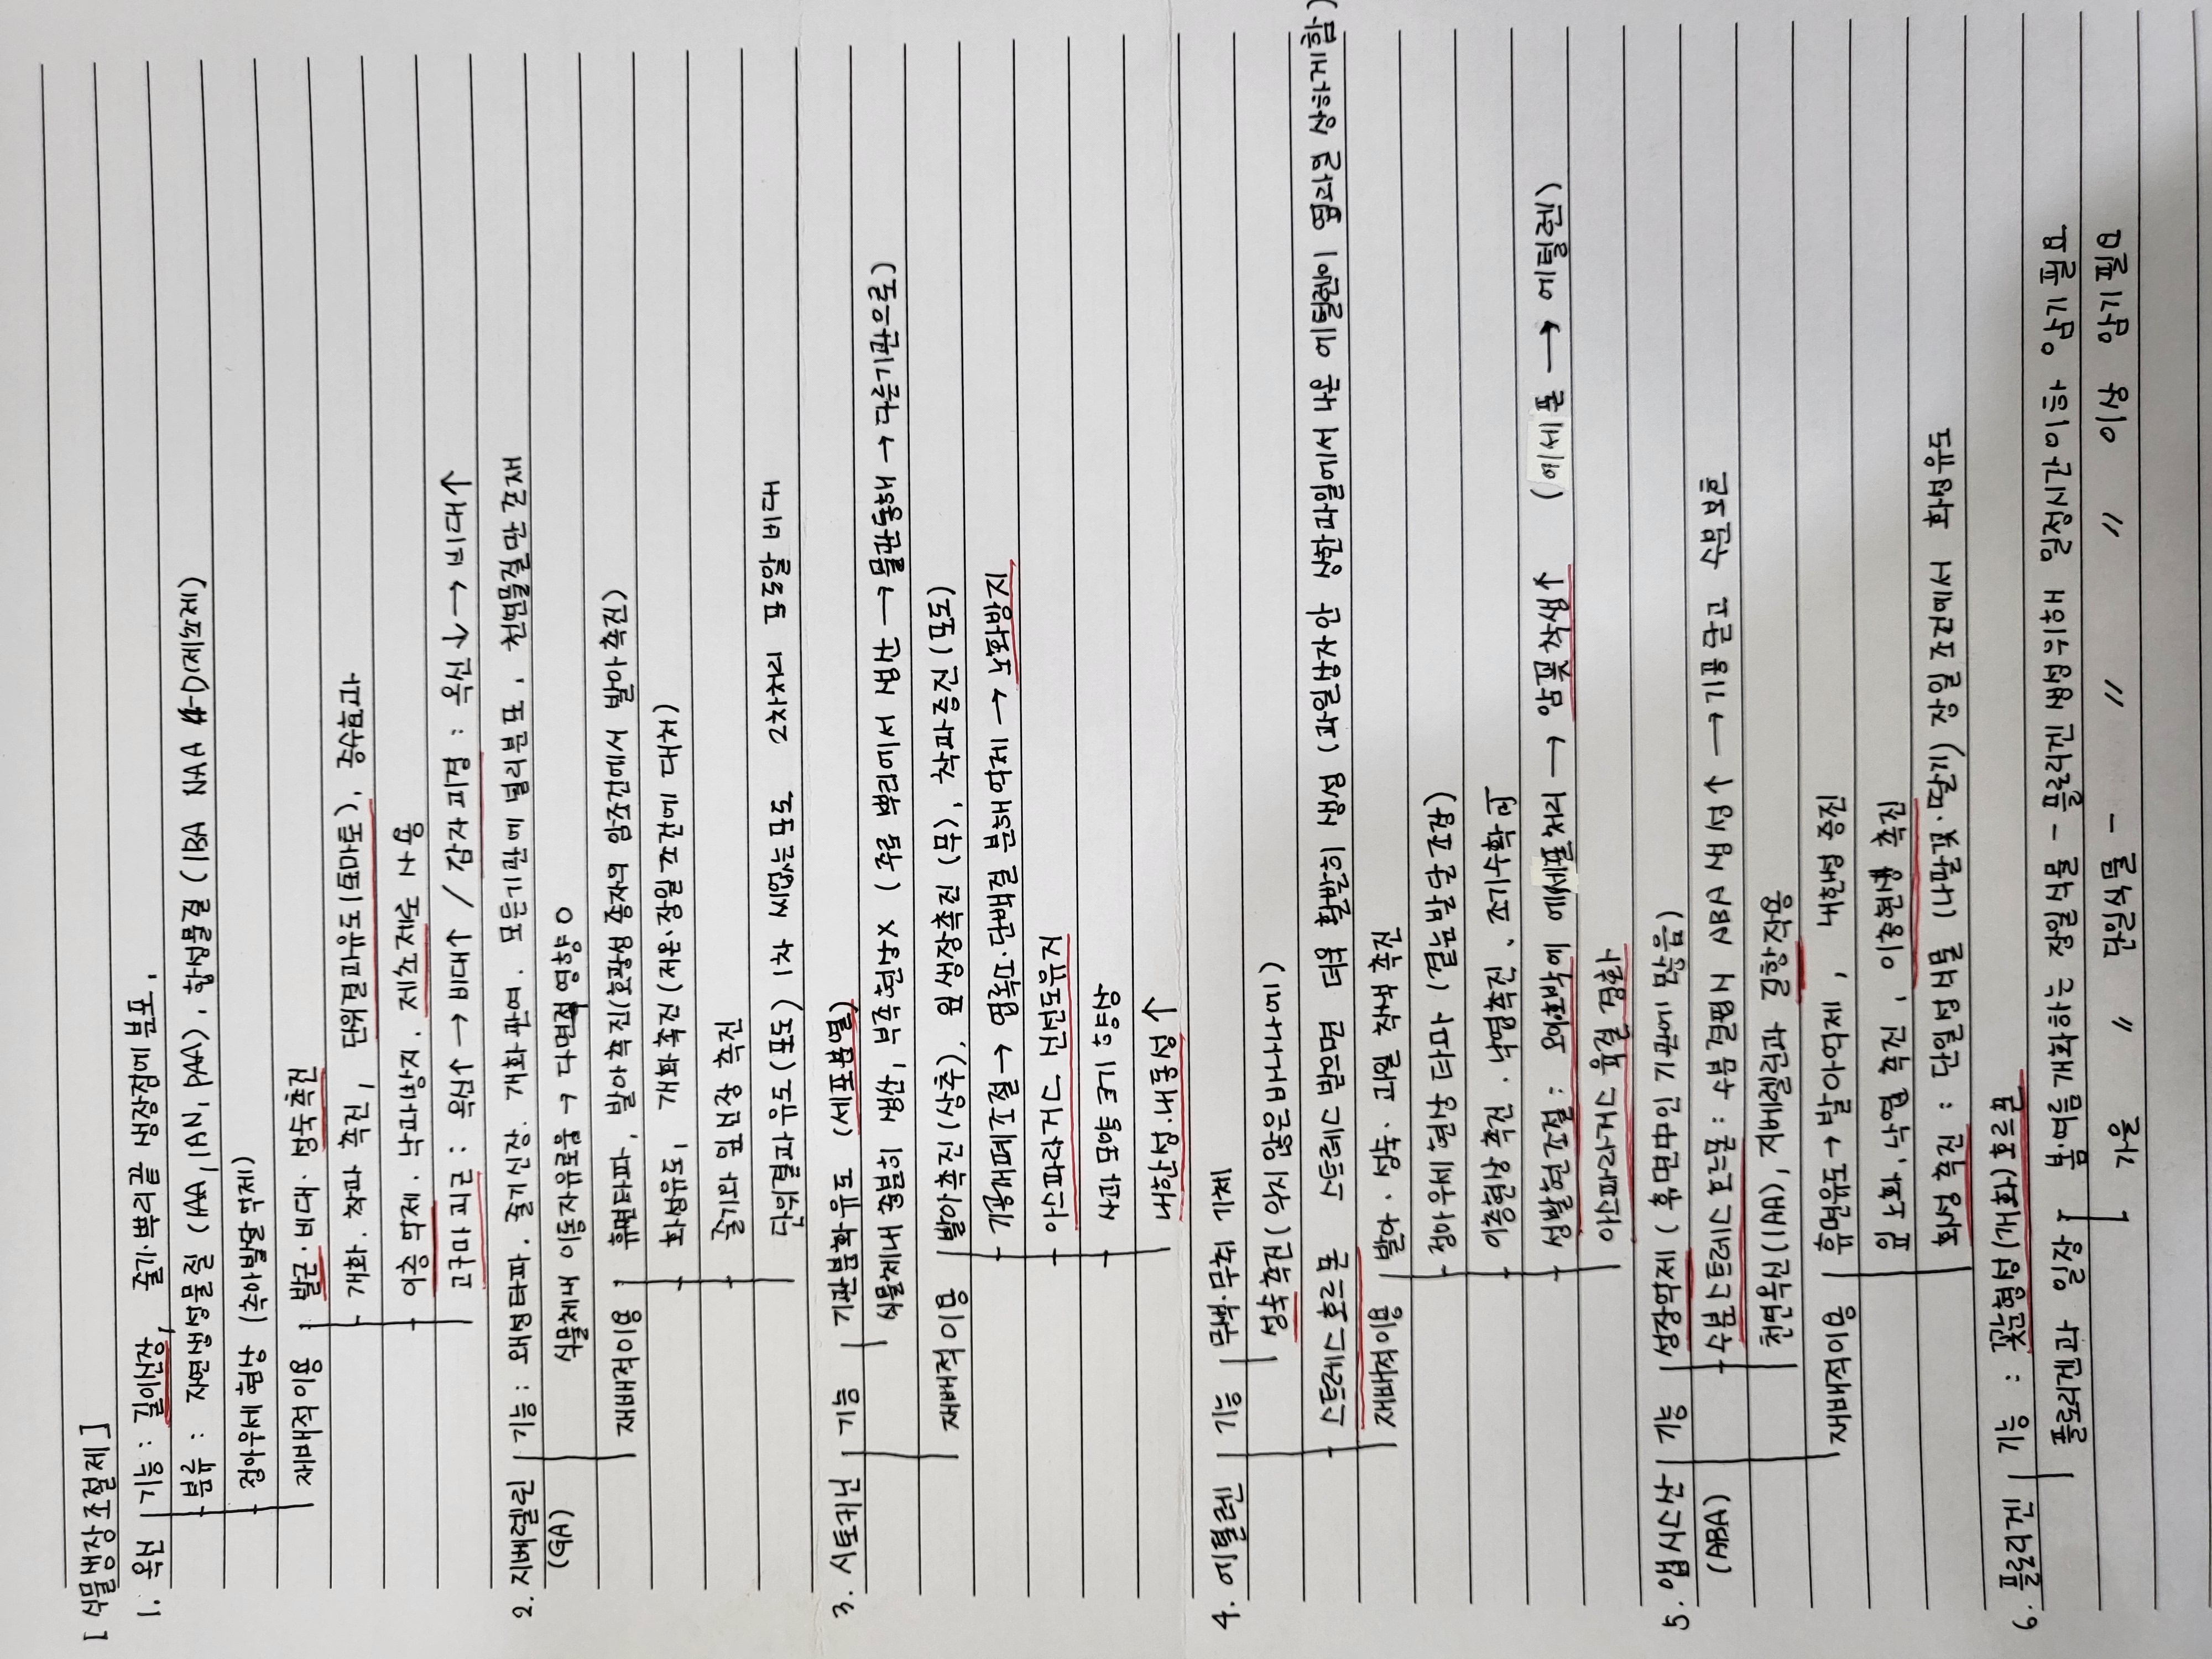 [식물생장조절제]
1. 옥신 기능 : 길이신장, 줄기·뿌리끝 생장점에 분포.
분류 : 자연생성물질 (IAA, IAN, PAA), 합성물질 (IBA NAA 4-D(제초제)
정아우세 현상 (측아발달 억제)
재배적이용 발근·비대·성숙촉진
개화. 착과 촉진, 단위결과유도(토마토), 증수효과
이층 억제. 낙과방지. 제초제로 사용
고구마 괴근 : 옥신↑ → 비대↑ / 감자 괴경 : 옥신↓ → 비대↑
2. 지베렐린 기능 : 왜성타파. 줄기신장. 개화 관여. 모든기관에 널리분포, 천연물질만 존재
(GA) 식물체내 이동자유로움 → 다면적 영향 O
재배적이용 휴면타파, 발아촉진(호광성 종자의 암조건에서 발아촉진)
화성유도, 개화촉진 (저온·장일 조건에 대치)
줄기와 잎 신장 촉진
단위결과유도 (포도) 1차 씨없는포도 2차처리 포도알 비대
3. 시토키닌 기능 기관분화유도 (세포분열)
식물체내 충분히 생산, 부족현상X (주로 뿌리에서 생산 → 물관통해 → 다른기관으로)
재배적이용 발아촉진 (상추), 잎 생장촉진 (무), 착과증진 (포도)
기공개폐조절 → 엽록소·단백질 분해억제 → 노화방지
아스파라거스 신선도유지
사과 모양·크기 향상
내한성·내동성↑
4. 에틸렌 기능 무색·무취 기체
성숙촉진 (익지않은바나나에)
스트레스호르몬 스트레스 받으면 더욱 활발히 생성 (과일상자안 상한과일에서 나온 에틸렌이 옆과일 상하게함)
재배적이용 발아·성숙·과일 착색 촉진
정아우세 현상 타파 (곁눈발달 조장)
이층형상 촉진. 낙엽촉진. 조기수확
성발현조절 : 오이·호박에 에세폰처리 → 암꽃착생↑ (에세폰 → 에틸렌)
아스파라거스 육질 경화
5. 앱시스산 기능 성장억제 (휴면중인 기관에 많음)
(ABA) 수분스트레스호르몬 : 수분결핍시 ABA 생성↑ → 기공닫고 수분보호
천연옥신(IAA), 지베렐린과 길항작용
재배적이용 휴면유도 → 발아억제, 내한성 증진
잎 노화, 낙엽 촉진, 이층현상 촉진
화성 촉진 : 단일성식물 (나팔꽃·딸기) 장일조건에서 화성유도
6. 플로리겐 기능 : 꽃눈형성(개화)호르몬
플로리겐과 일장 봄·여름개화하는 장일식물 - 플로리겐 생성위해 일정시간이하 암기필요
가을 〃 단일식물 - 〃 〃 이상 암기필요